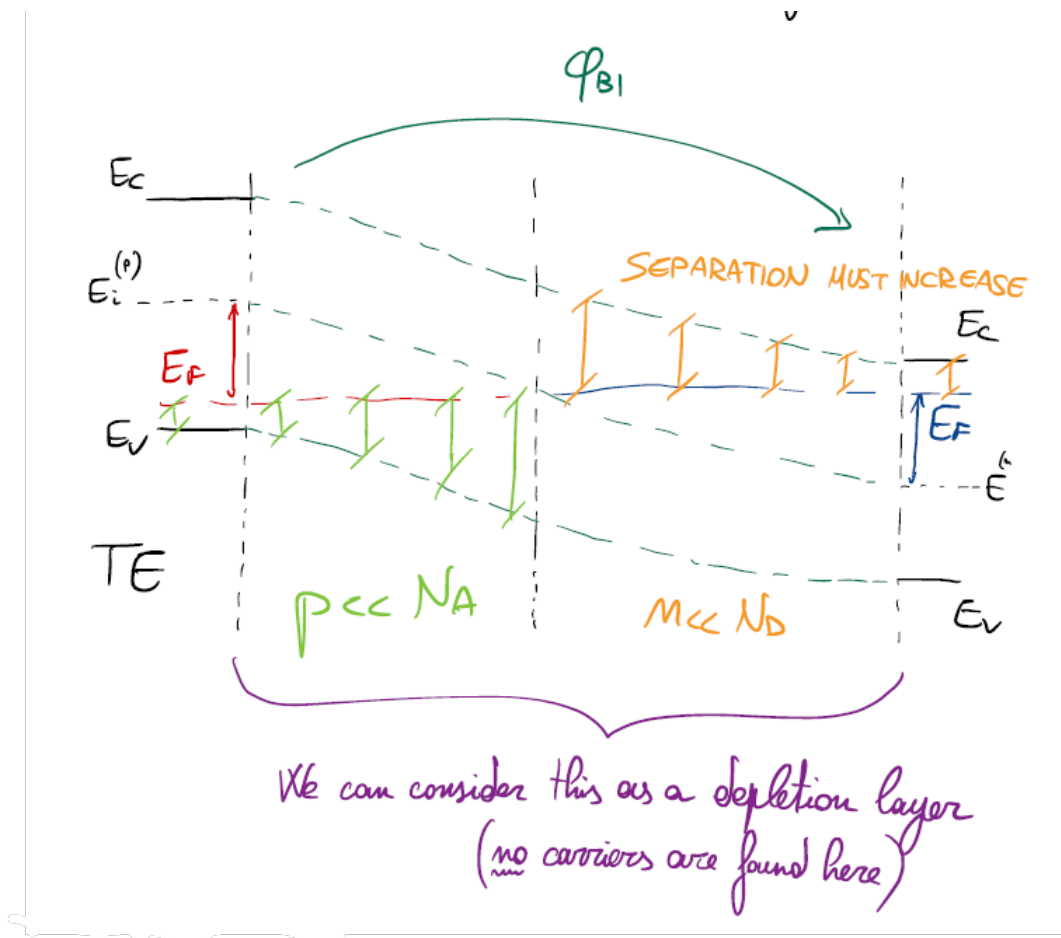 φBI
EC
Ei(p)
SEPARATION MUST INCREASE
EC
EF
EV
EF
E(n
TE
p<< NA
n<< ND
EV
We can consider this as a depletion layer
(no carriers are found here)